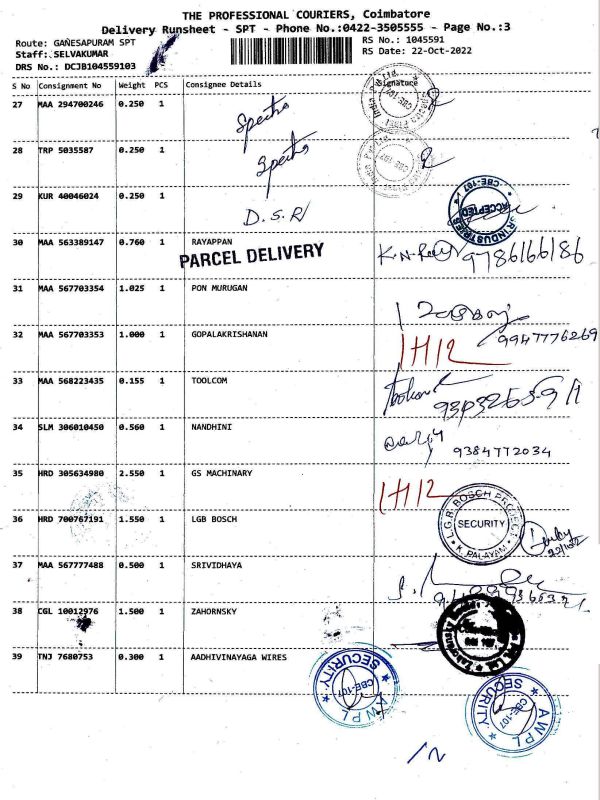 THE PROFESSIONAL COURIERS, Coimbatore
Delivery Runsheet - SPT - Phone No.:0422-3505555 - Page No.:3
Route: GANESAPURAM SPT
RS No.: 1045591
Staff: SELVAKUMAR
RS Date: 22-Oct-2022
DRS No.: DCJB104559103
S No Consignment No Weight PCS Consignee Details Signature
27 MAA 294700246 0.250 1 Spectro
28 TRP 5035587 0.250 1 Spectro
29 KUR 40046024 0.250 1 D.S.R
CBE-107 ACCEPTED
30 MAA 563389147 0.760 1 RAYAPPAN
PARCEL DELIVERY
9786166186
31 MAA 567703354 1.025 1 PON MURUGAN
32 MAA 567703353 1.000 1 GOPALAKRISHANAN
9947776269
33 MAA 568223435 0.155 1 TOOLCOM
34 SLM 306010450 0.560 1 NANDHINI
9384772034
35 HRD 305634980 2.550 1 GS MACHINARY
36 HRD 700767191 1.550 1 LGB BOSCH
L.G.B. BOSCH PROJECT
SECURITY
K. PALAYAM
37 MAA 567777488 0.500 1 SRIVIDHAYA
38 CGL 10012976 1.500 1 ZAHORNSKY
39 TNJ 7680753 0.300 1 AADHIVINAYAGA WIRES
SECURITY
CBE-107
AWPL
SECURITY
CBE-107
AWPL